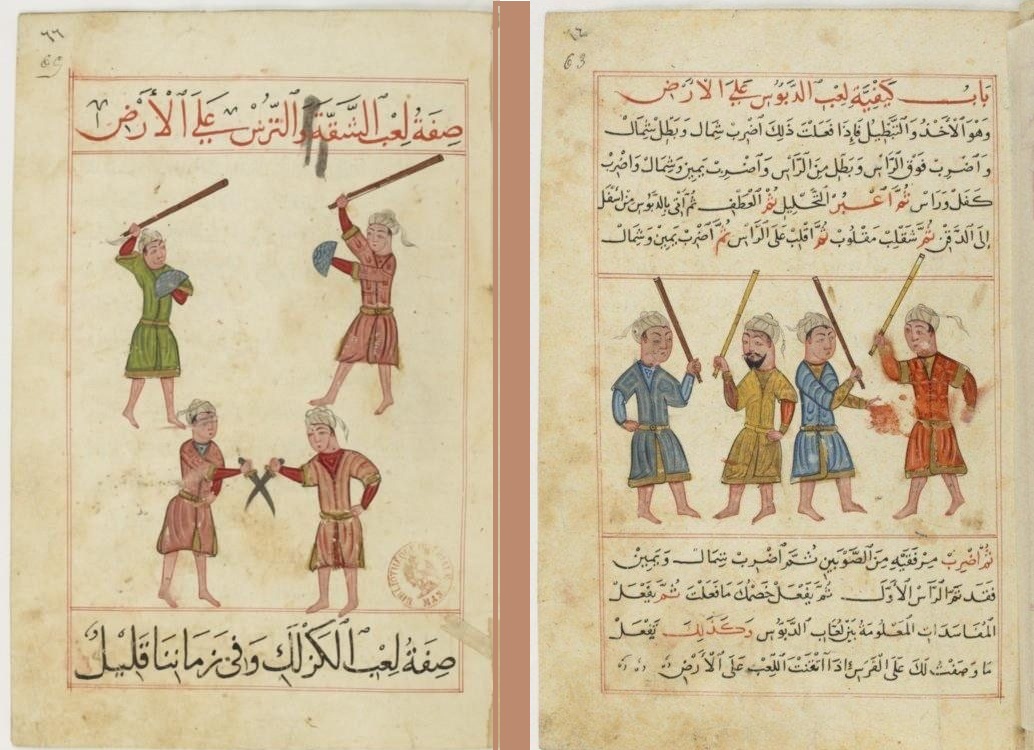 ٦٦
69
صفة لعب الشقة والترس على الأرض
صفة لعب الكزلك وفي زماننا قليل
63
باب كيفية لعب الدبوس على الارض
وهو الأخذ والتبطيل فإذا فعلت ذلك اضرب شمال وبطل شمال
واضرب فوق الراس وبطل من الراس واضرب يمين وشمال واضرب
كفل وراس ثم اعبر التحليل ثم العطف ثم اتى بالدبوس من اسفل
إلى الدقن ثم شقلب مقلوب ثم اقلب على الراس ثم اضرب يمين وشمال
ثم اضرب مرفقيه من الصوبين ثم اضرب شمال ويمين
فقد تم الراس الأول ثم يفعل خصمك ما فعلت ثم يفعل
المفاسدات المعلومة بين لعاب الدبوس وكذلك يفعل
ما وصفت لك على الفرس اذا اتقنت اللعب على الأرض